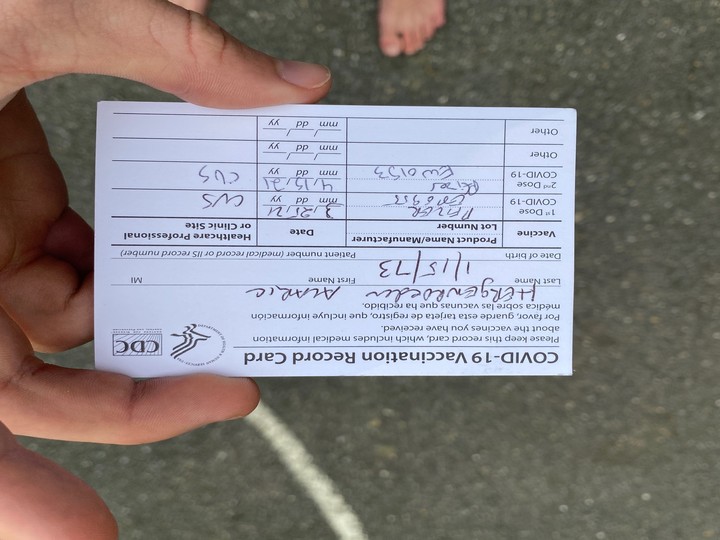 COVID-19 Vaccination Record Card
CDC
Please keep this record card, which includes medical information
about the vaccines you have received.
Por favor, guarde esta tarjeta de registro, que incluye información
médica sobre las vacunas que ha recibido.
Last Name First Name MI
1/15/73
Date of birth Patient number (medical record or IIS record number)
Vaccine Product Name/Manufacturer Lot Number Date Healthcare Professional or Clinic Site
1st Dose COVID-19 PFIZER mm dd yy CVS
2nd Dose COVID-19 EW0153 4/15/21 mm dd yy CVS
Other mm dd yy
Other mm dd yy